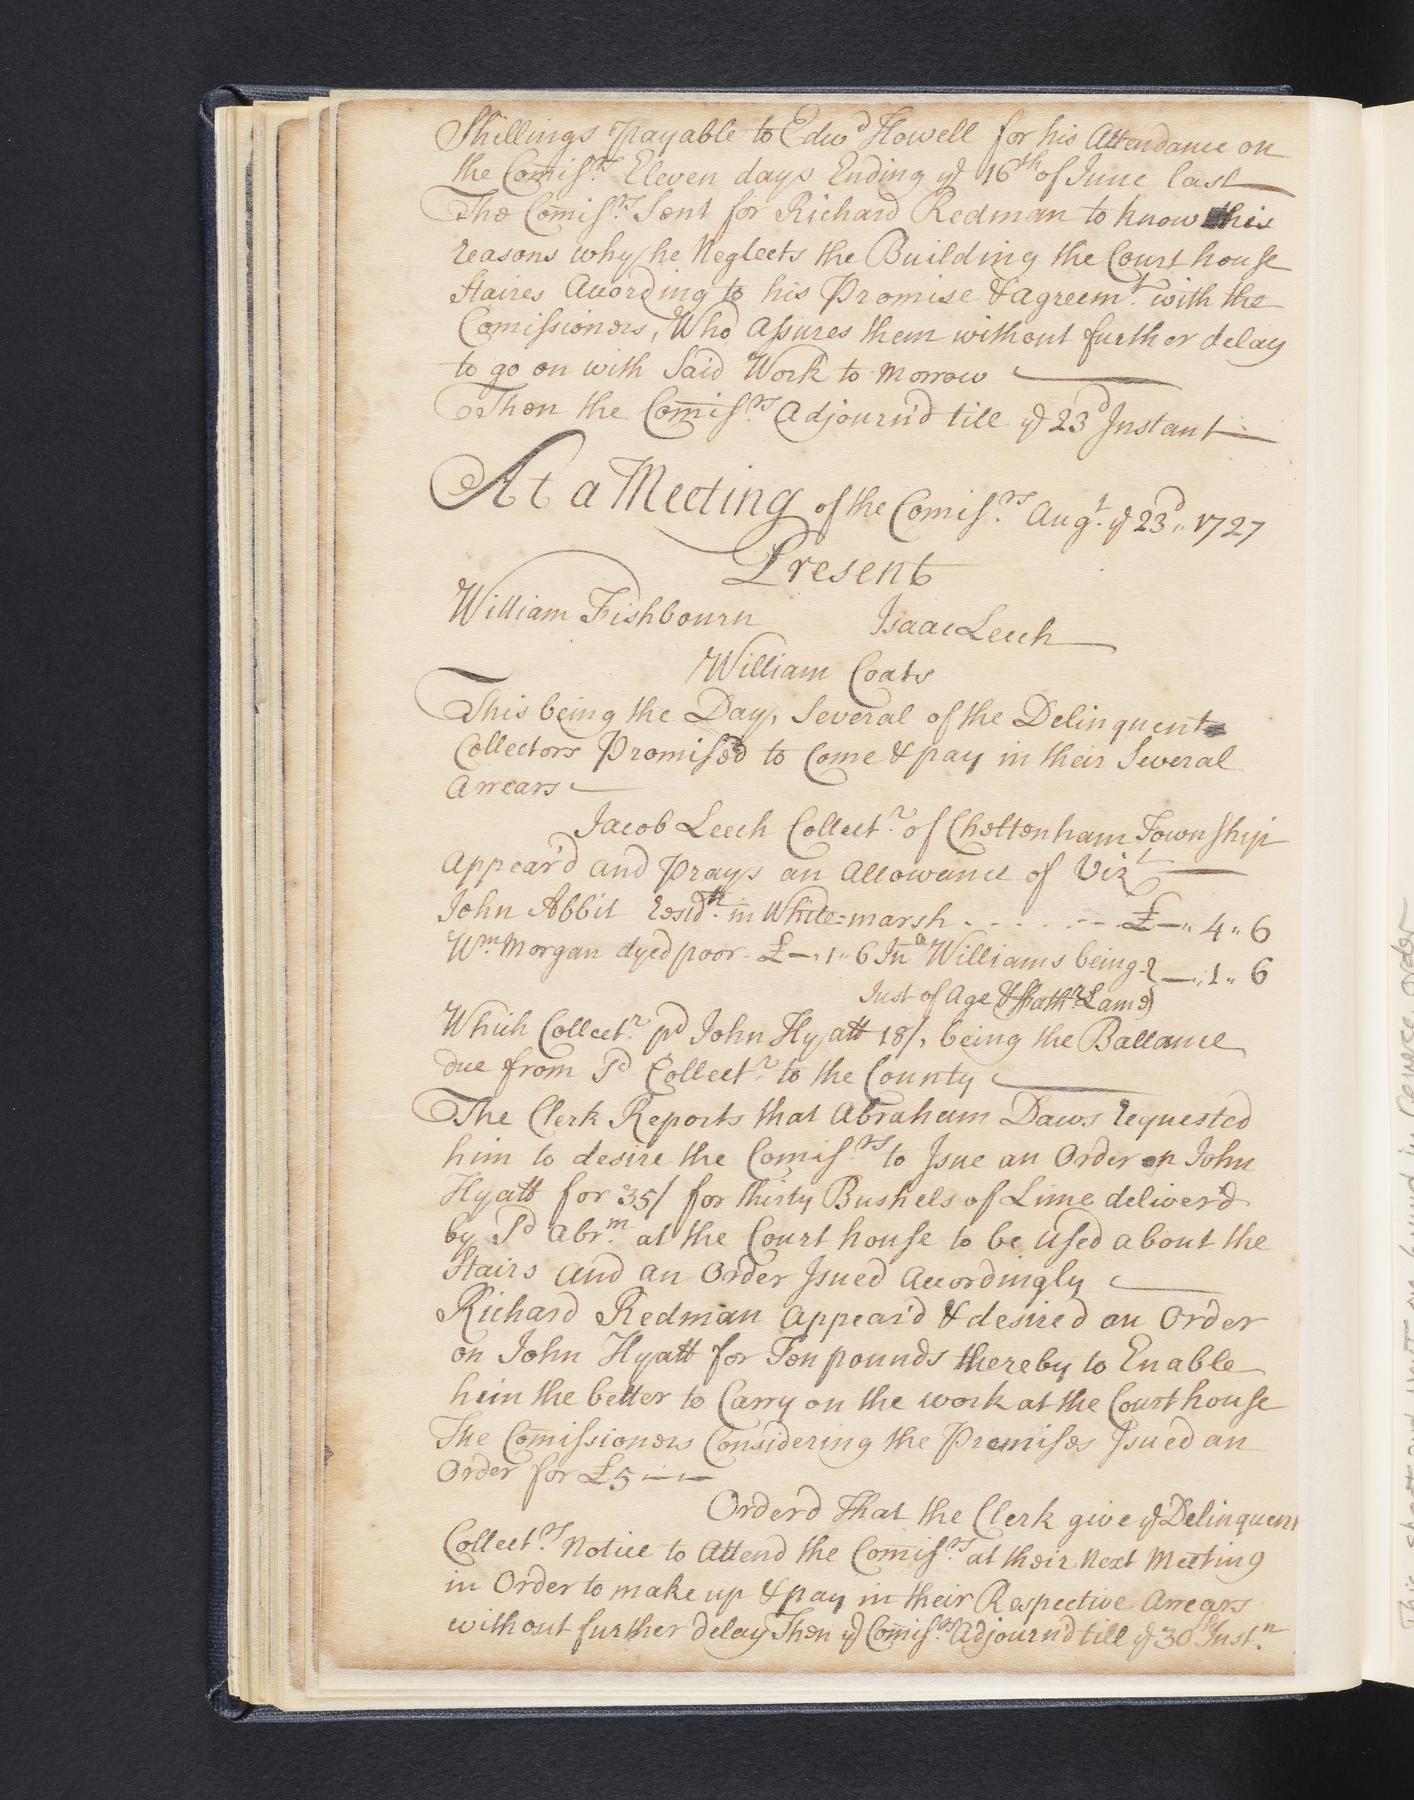 Shillings Payable to Edwd Howell for his Attendance on
the Comissrs Eleven days Ending ye 16th of June last
The Comissrs Sent for Richard Redman to know his
reasons why he Neglects the Building the Court house
Staires According to his Promise & agreemt with the
Comissioners, Who Assures them without further delay
to go on with Said Work to Morrow
Then the Comissrs Adjourn'd till ye 23d Instant
At a Meeting of the Comissrs Augt ye 23d 1727
Present
William Fishbourn Isaac Leech
William Coats
This being the Day, Several of the Delinquent
Collectors Promised to Come & pay in their Several
Arrears
Jacob Leech Collectr of Cheltenham Township
Appear'd and Prays an Allowance of Vizt
John Abbit residt in White=marsh - - - - - £ — " 4 " 6
Wm Morgan dyed poor - £ — " 1 " 6 Jna Williams being } — " 1 " 6
Just of Age & Lame)
Which Collectr pd John Hyatt 18/, being the Ballance
due from Sd Collectr to the County
The Clerk Reports that Abraham Daws requested
him to desire the Comissrs to Isue an Order on John
Hyatt for 35/ for thirty Bushels of Lime deliver'd
by Sd Abrm at the Court house to be Used about the
Stairs and an Order Isued Accordingly
Richard Redman Appear'd & desired an Order
on John Hyatt for Ten pounds thereby to Enable
him the better to Carry on the work at the Court house
The Comissioners Considering the Premises Isued an
Order for £5 — —
Orderd That the Clerk give ye Delinquent
Collectrs Notice to Attend the Comissrs at their Next Meeting
in Order to make up & pay in their Respective Arrears
without further delay Then ye Comissrs Adjourn'd till ye 30th Instn